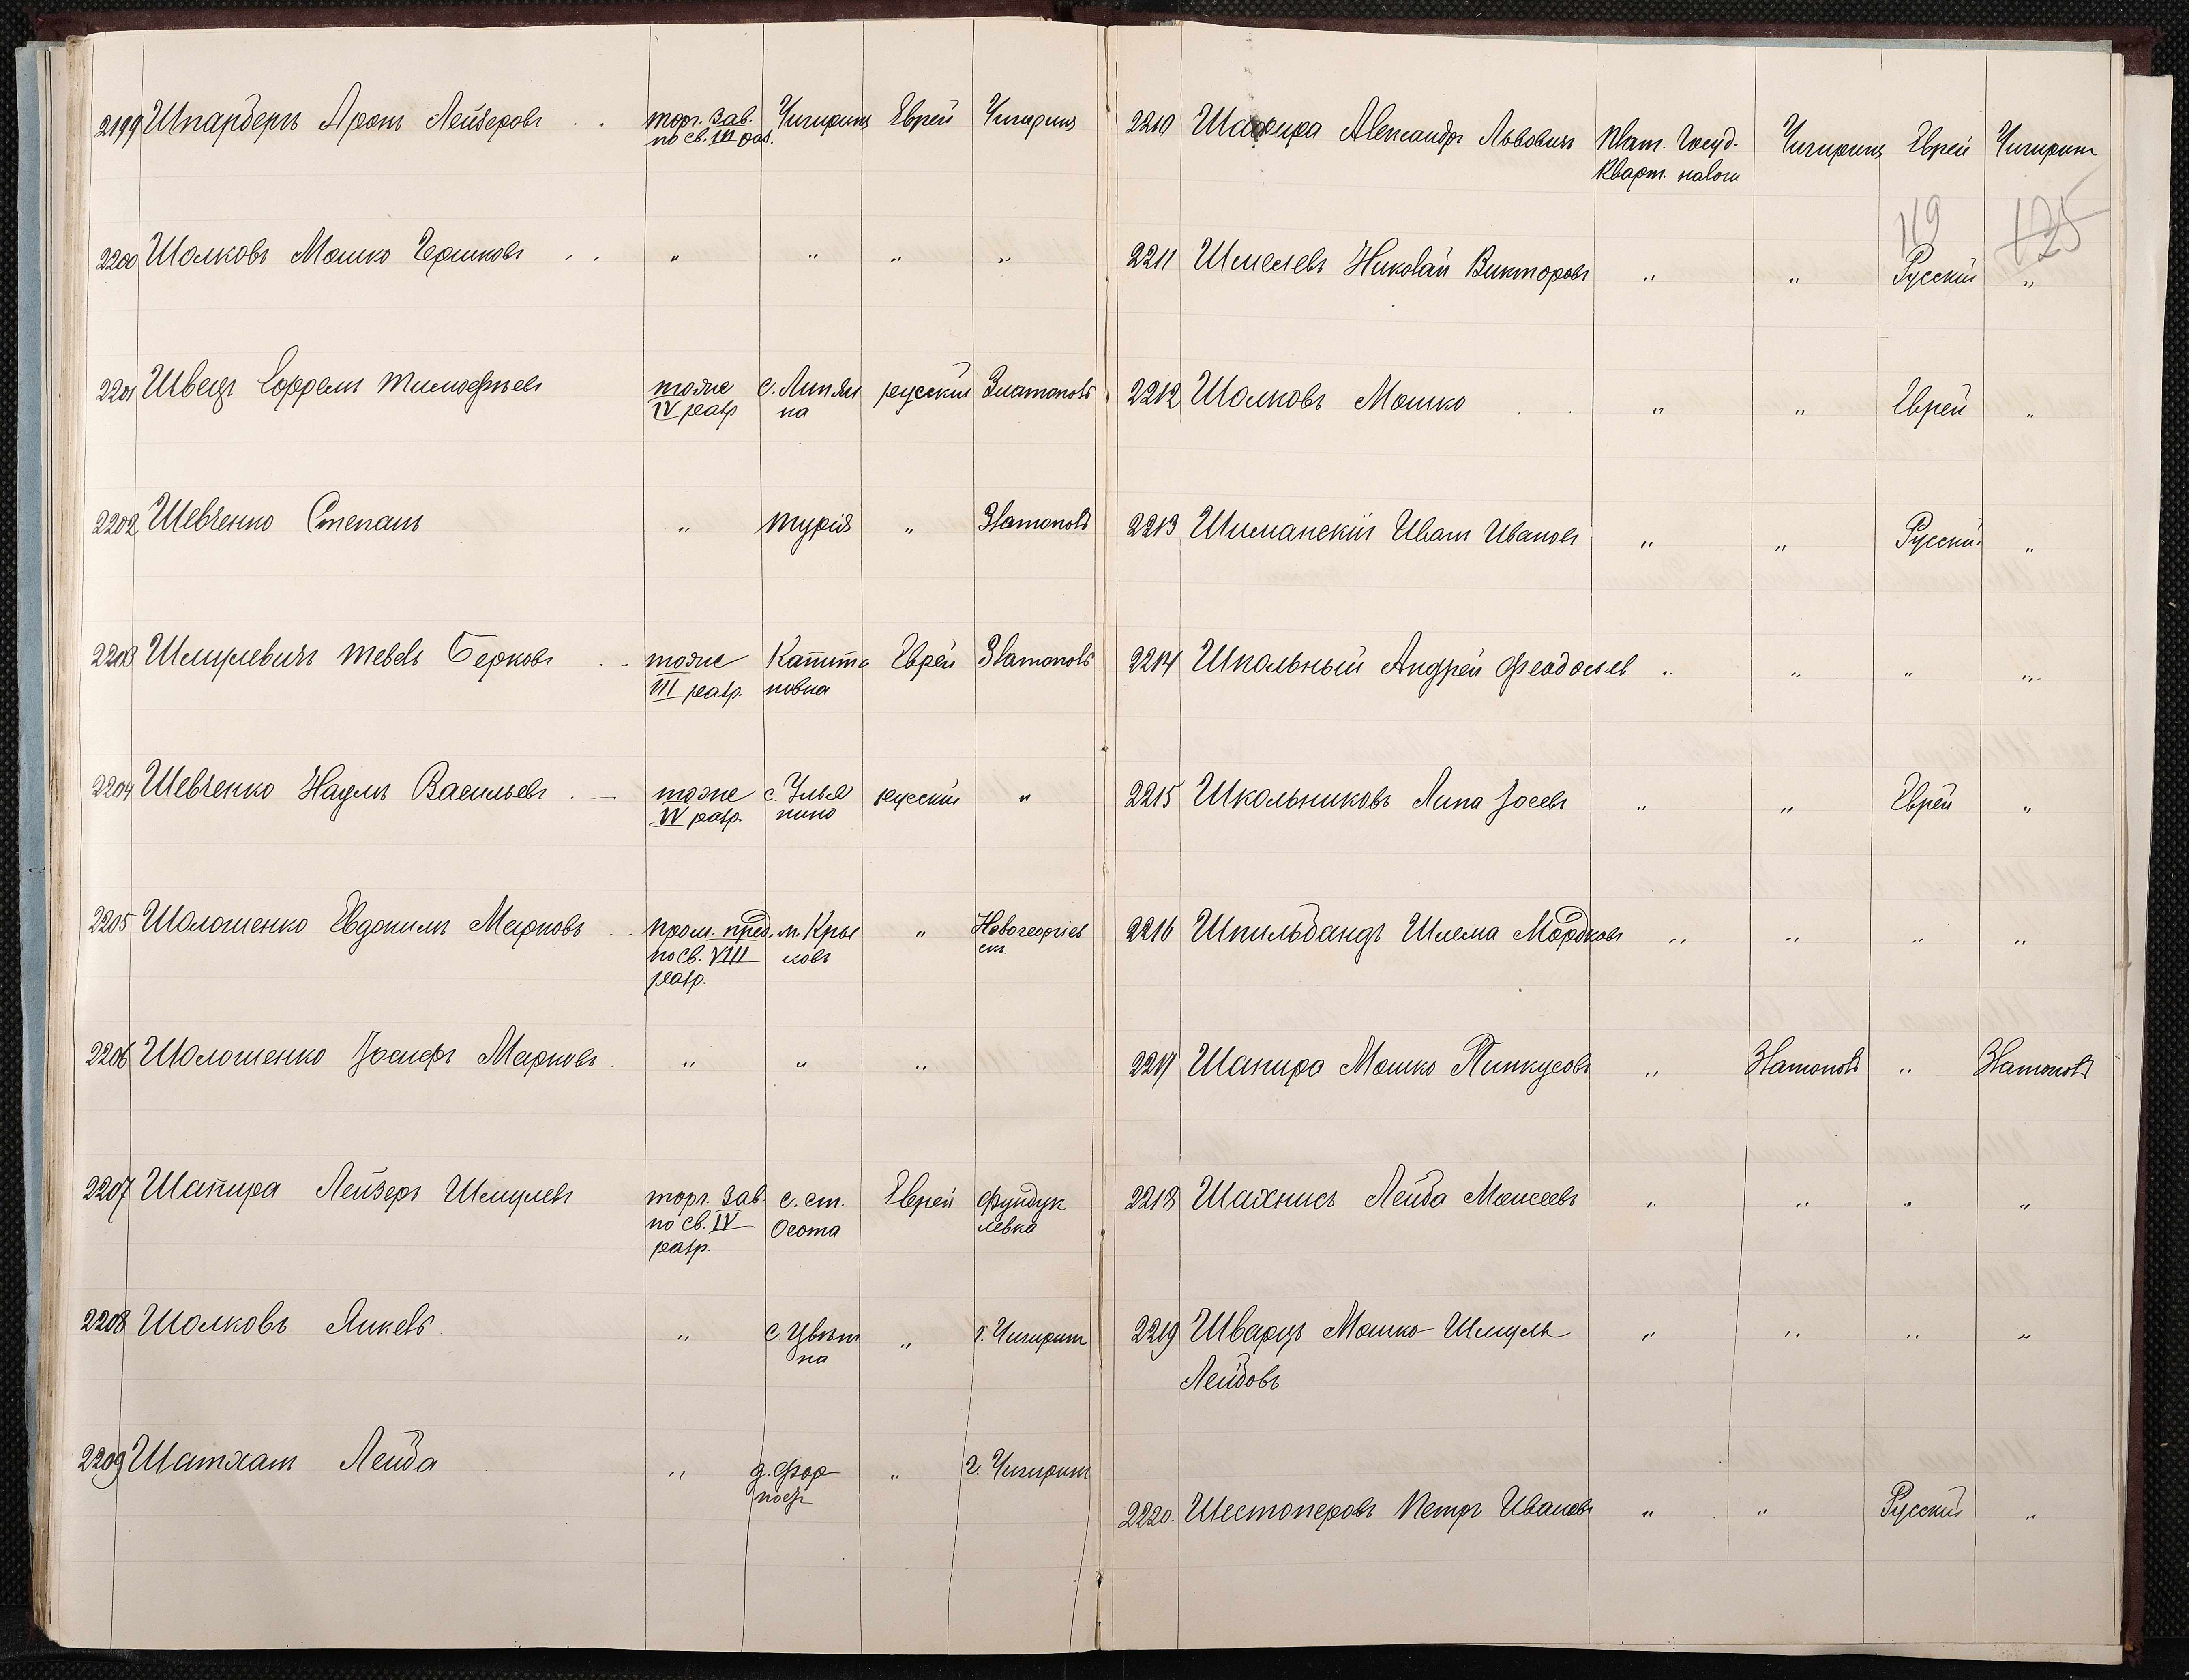 2199 Шпарберъ Аронъ Лейзеровъ . . торг. зав. Чигиринъ Еврей Чигиринъ
по св. III раз.
2200 Шолковъ Мошко Гершковъ . . " " " "
2201 Швецъ Ефремъ Тимофѣевъ тоже с. Липян русскій Златополь
IV разр на
2202 Шевченко Степанъ " Турія " Златополь
2203 Шмулевичъ Тевель Берковъ . . тоже Капита Еврей Златополь
III разр. новка
2204 Шевченко Наумъ Васильевъ . — тоже с. Улья русскій "
IV разр. ново
2205 Шолошенко Евдокимъ Марковъ . . пром. пред. м. Кры " Новогеоргіев
по св. VIII ловъ скъ
разр.
2206 Шолошенко Іосифъ Марковъ . " " "
2207 Шапира Лейзеръ Шмулевъ торг. зав с. ст. Еврей Фундук
по св. IV Осота левка
разр.
2208 Шолковъ Янкель " с. Цвѣт " г. Чигиринъ
на
2209 Шатханъ Лейба " д. Фор " г. Чигиринъ
постъ
2210 Шапира Александръ Львовичъ Плат. Госуд. Чигиринъ Еврей Чигиринъ
Кварт. налогъ
119 125
2211 Шмелевъ Николай Викторовъ " " Русскій "
2212 Шолковъ Мошко . . " " Еврей "
2213 Шиманскій Иванъ Ивановъ " " Русскій "
2214 Школьный Андрей Феодосьев " " " "
2215 Школьниковъ Липа Іосевъ " " Еврей "
2216 Шпильбандъ Шлема Мордковъ " " " "
2217 Шапира Мошко Пинкусовъ " Златополь " Златополь
2218 Шахнисъ Лейба Моисеевъ " " " "
2219 Шварцъ Мошко-Шмуль " " " "
Лейбовъ
2220. Шестоперовъ Петръ Ивановъ " " Русскій "